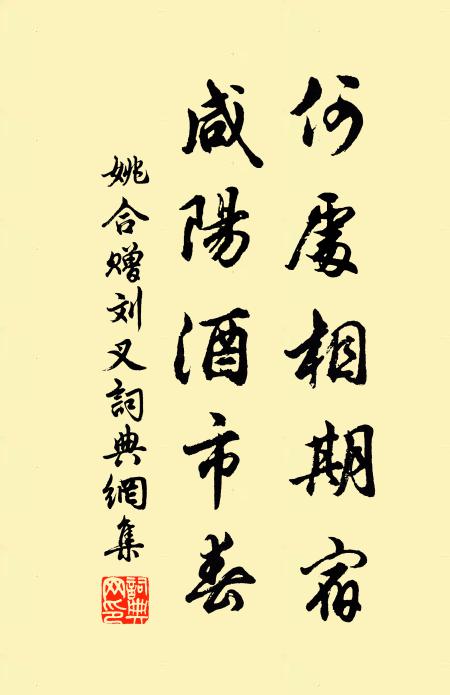 何處相期宿
咸陽酒市春
姚合赠刘叉詞典網集
詞典网印